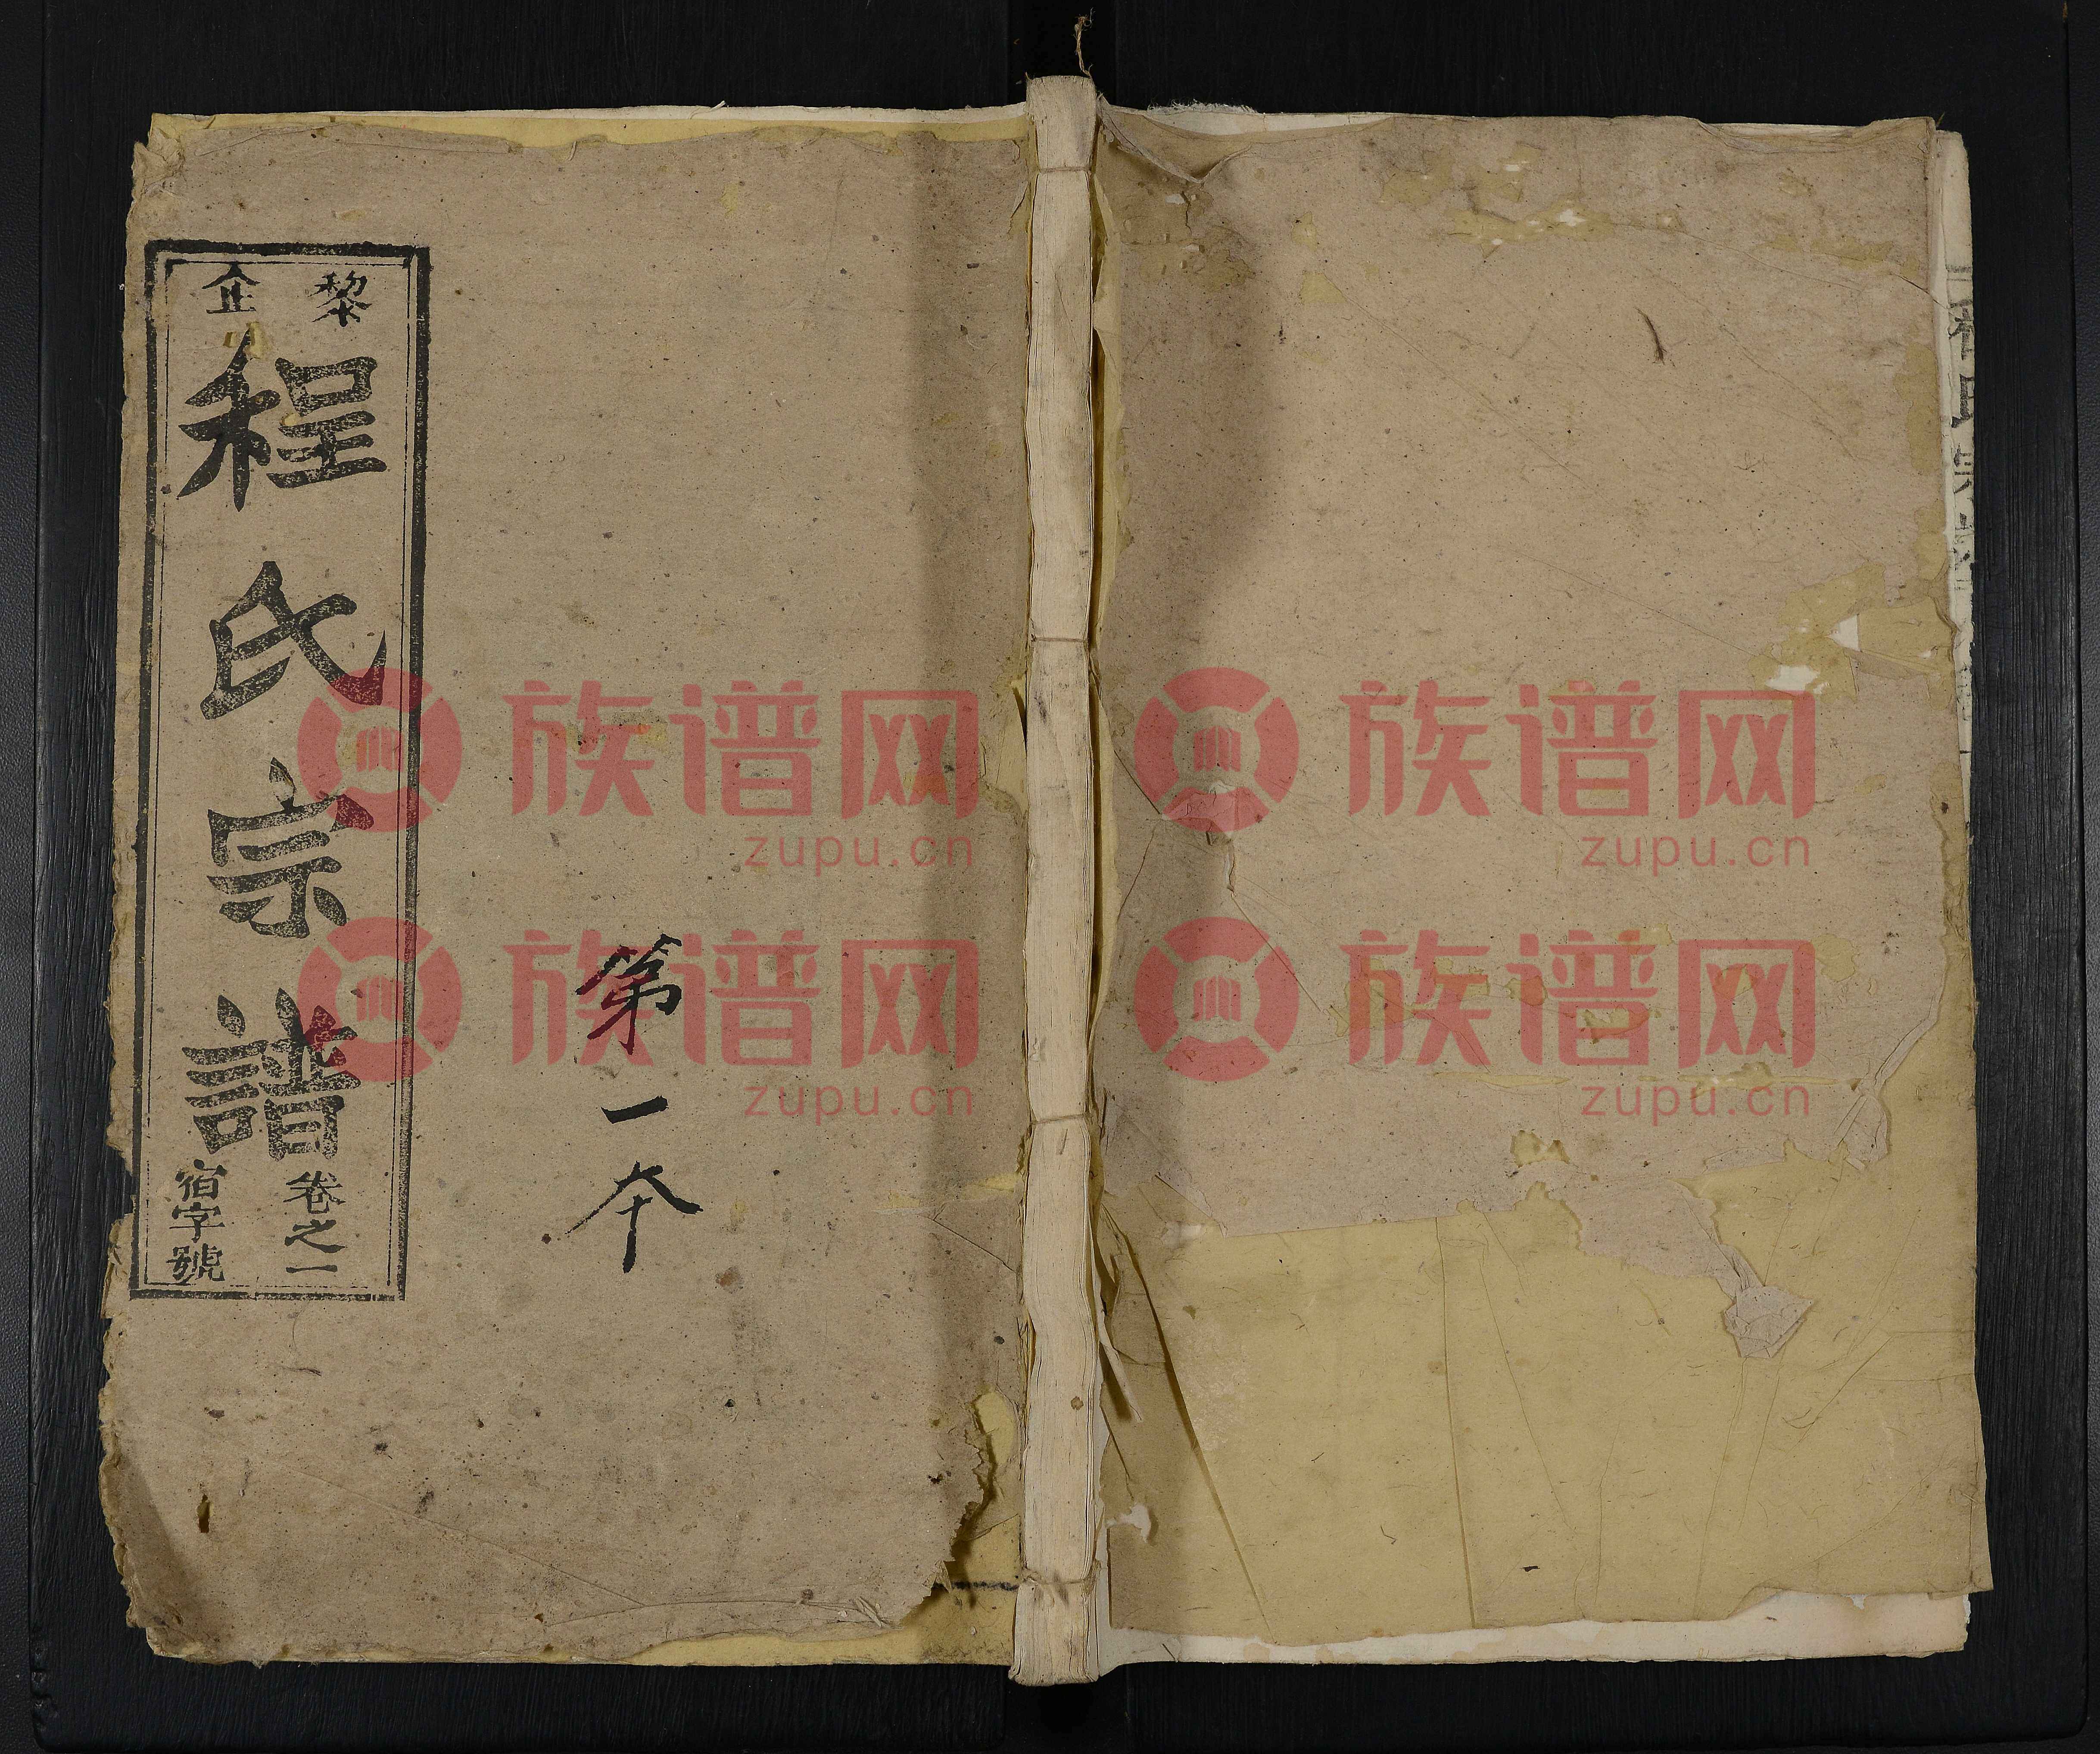 黎企
程氏宗譜
卷之一
宿字號
第一本
族谱网
zupu.cn
族谱网
zupu.cn
族谱网
zupu.cn
族谱网
zupu.cn